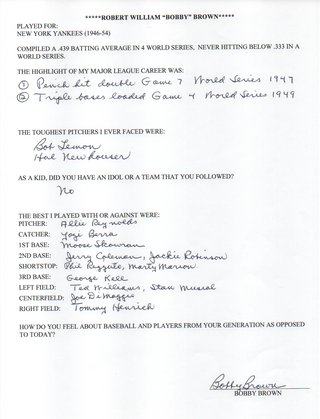 *****ROBERT WILLIAM "BOBBY" BROWN*****
PLAYED FOR:
NEW YORK YANKEES (1946-54)
COMPILED A .439 BATTING AVERAGE IN 4 WORLD SERIES, NEVER HITTING BELOW .333 IN A
WORLD SERIES.
THE HIGHLIGHT OF MY MAJOR LEAGUE CAREER WAS:
① Pinch hit double Game 7 World Series 1947
② Triple bases loaded Game 4 World Series 1949
THE TOUGHEST PITCHERS I EVER FACED WERE:
Bob Lemon
Hal Newhouser
AS A KID, DID YOU HAVE AN IDOL OR A TEAM THAT YOU FOLLOWED?
No
THE BEST I PLAYED WITH OR AGAINST WERE:
PITCHER: Allie Reynolds
CATCHER: Yogi Berra
1ST BASE: Moose Skowran
2ND BASE: Jerry Coleman, Jackie Robinson
SHORTSTOP: Phil Rizzuto, Marty Marion
3RD BASE: George Kell
LEFT FIELD: Ted Williams, Stan Musial
CENTERFIELD: Joe DeMaggio
RIGHT FIELD: Tommy Henrich
HOW DO YOU FEEL ABOUT BASEBALL AND PLAYERS FROM YOUR GENERATION AS OPPOSED
TO TODAY?
Bobby Brown
BOBBY BROWN